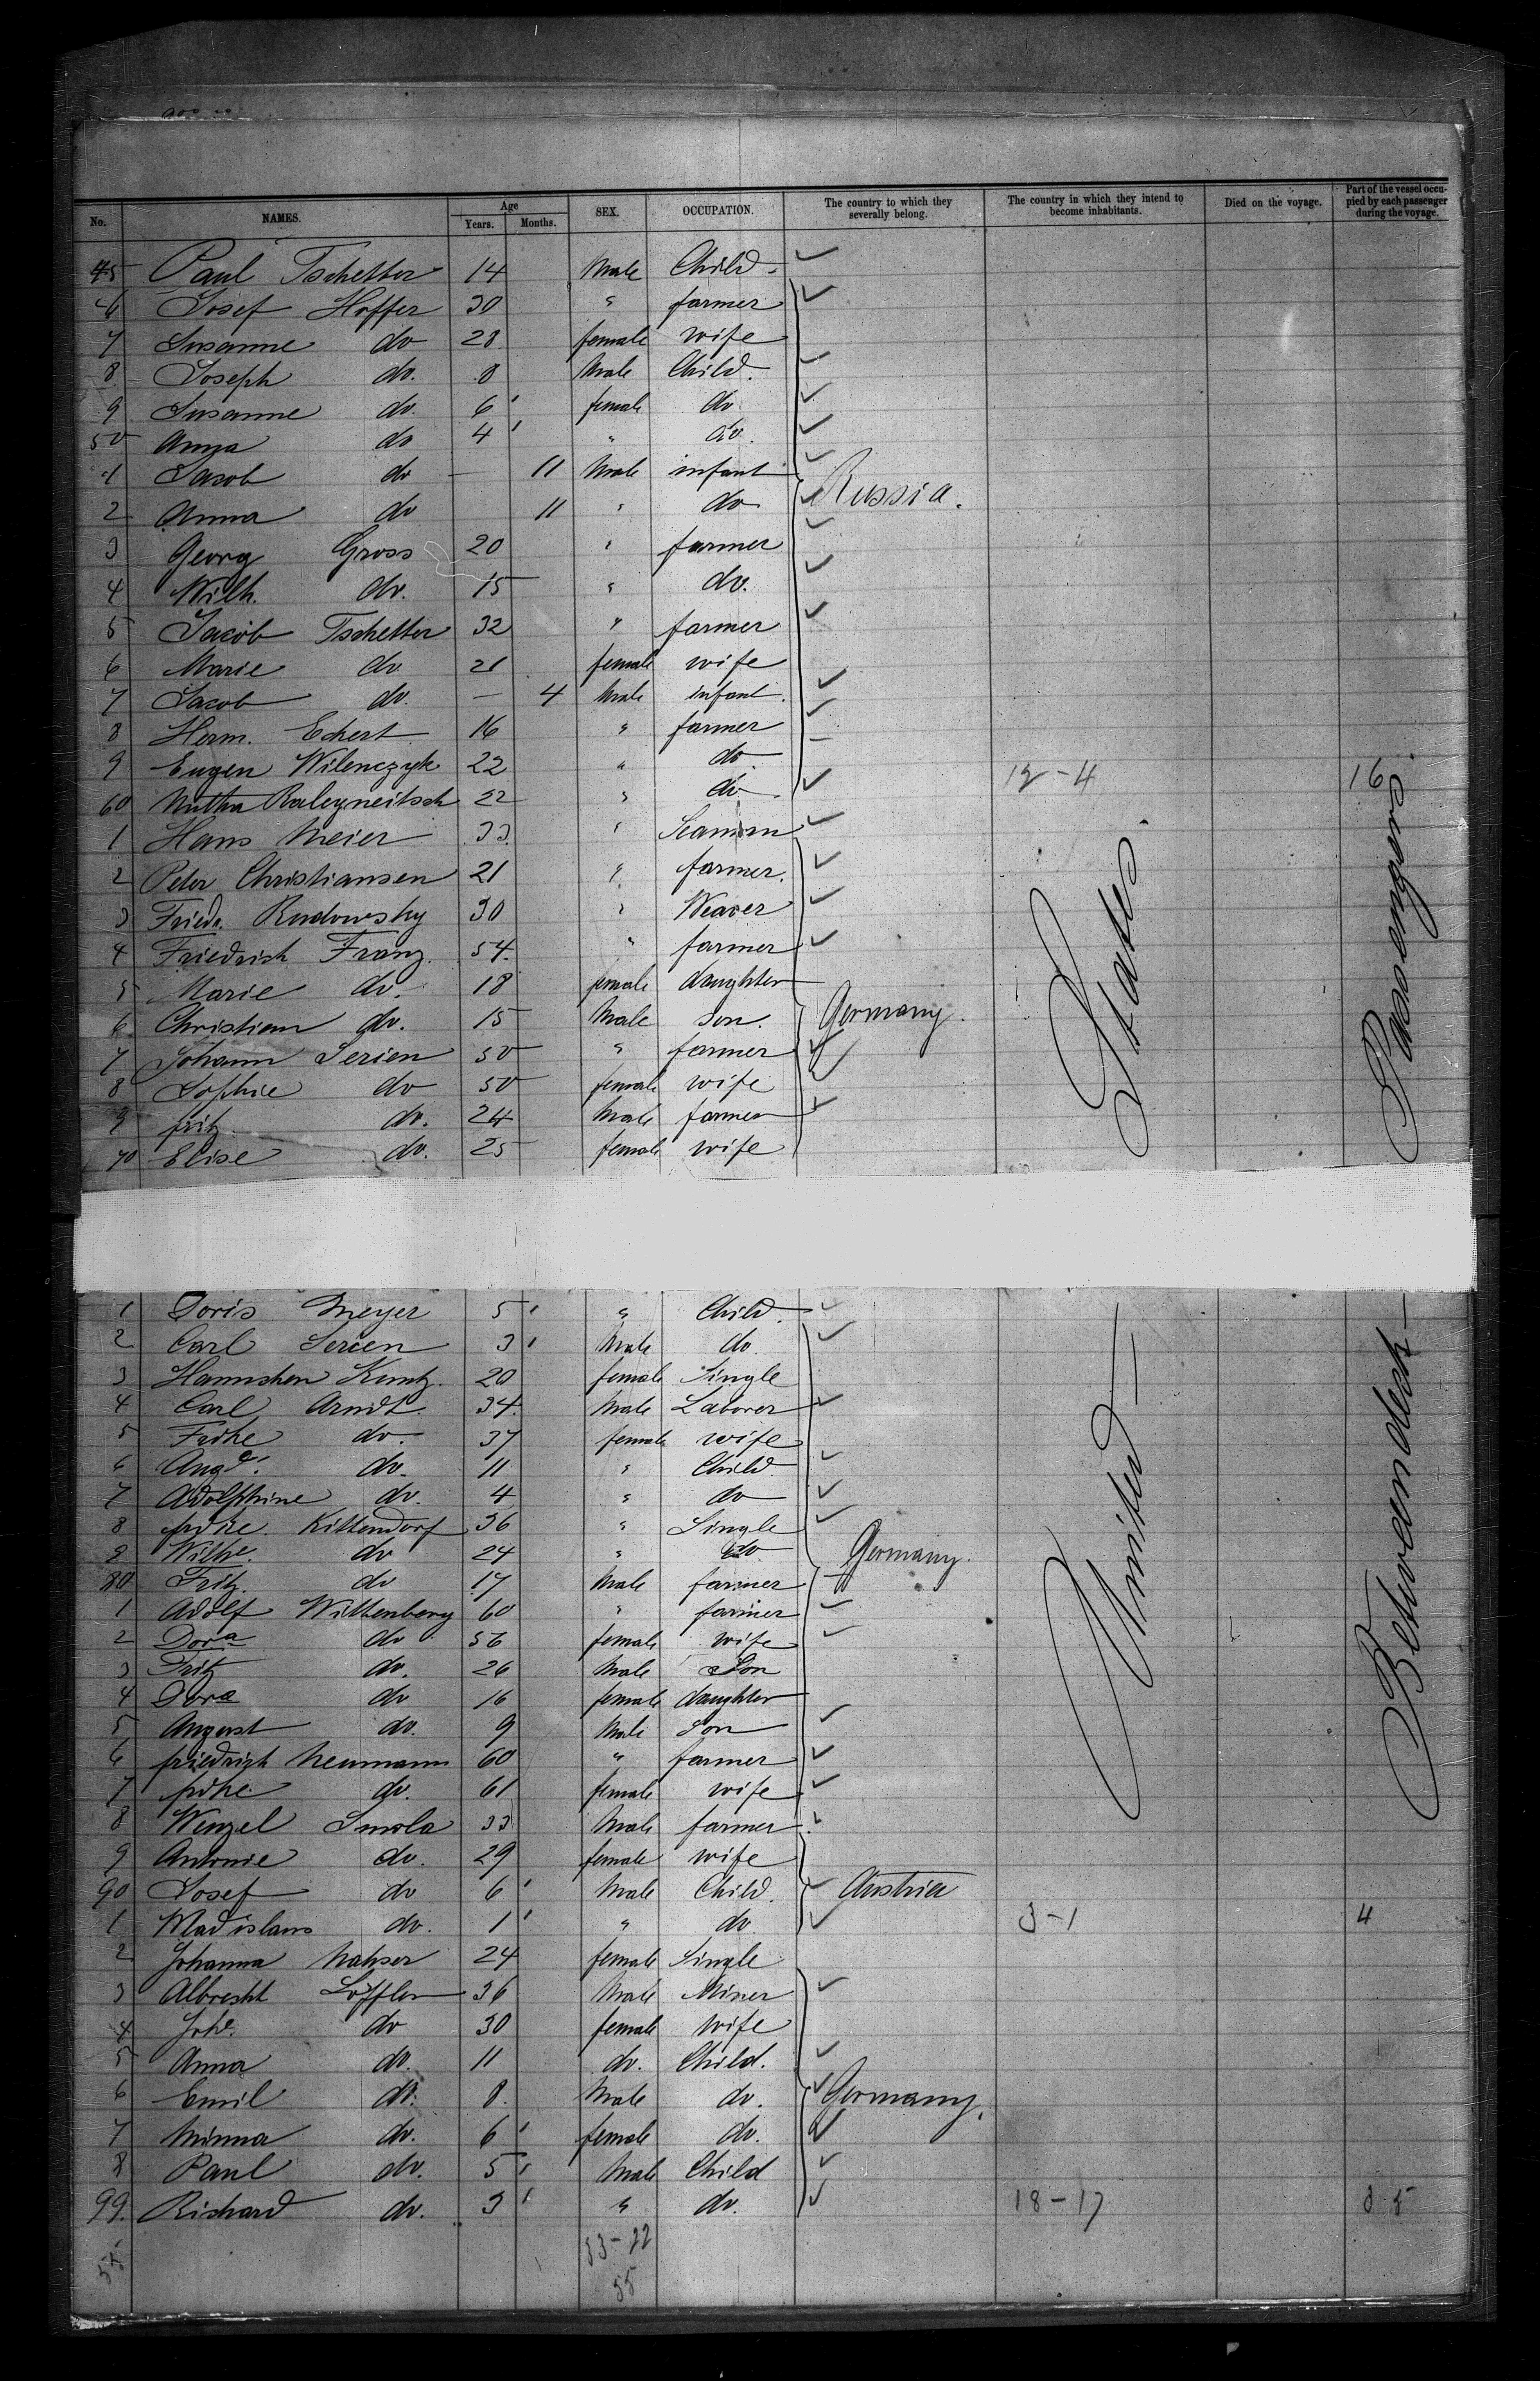 No. NAMES. Age Years. Months. SEX. OCCUPATION. The country to which they severally belong. The country in which they intend to become inhabitants. Died on the voyage. Part of the vessel occupied by each passenger during the voyage.
45 Paul Tschetter 14 Male Child.
6 Josef Hoffer 30 " farmer
7 Susanne do 28 female wife
8 Joseph do. 8 Male Child.
9 Susanne do. 6 female do
50 Anna do 4 " do.
1 Jacob do — 11 Male infant
2 Anna do 11 " do Russia.
3 Georg Gross 20 " farmer
4 Wilh. do. 15 " do.
5 Jacob Tschetter 32 " farmer
6 Marie do 21 female wife
7 Jacob do. — 4 Male infant.
8 Herm. Eckert 16 " farmer
9 Eugen Wilenczyk 22 " do 12-4 16
60 22 " do.
1 Hans Meier 33. " Seaman
2 Peter Christiansen 21 " farmer.
3 Friedr. Rudowsky 30 " Weaver
4 Friedrich Franz. 54. " farmer
5 Marie do. 18 female daughter
6 Christian do. 15 Male Son. Germany.
7 Johann Serien 50 " farmer
8 Sophie do 50 female wife
9 fritz. do. 24 Male farmer
70 Elise do. 25 female wife
States
Passengers.
1 Doris Meyer 5 " Child.
2 Carl Serien 3 Male do.
3 Hannchen Kuntz. 20 female Single
4 Carl Arndt. 34. Male Laborer
5 Frdke do. 37 female wife
6 Augd. do. 11 " Child.
7 Adolphine do. 4 " do
8 frdke. Kittendorf 36 " Single
9 Wilhe. do 24 " do Germany.
80 Fritz. do 17 Male farmer
1 Adolf Wittenberg 60 " farmer
2 Dora do 56 female wife
3 Fritz do. 26 Male Son
4 Dora do 16 female daughter
5 August do. 9 Male Son
6 friedrich Neumann 60 " farmer
7 frdke do. 61 female wife
8 Wenzel Smola 33 Male farmer
9 Antonie do. 29 female wife
90 Josef do 6 Male Child. Austria
1 Wladislaus do. 1 " do 3-1 4
2 Johanna Nahser 24 female Single
3 Albrecht Löffler 36 Male Miner
4 Johe. do 30 female wife
5 Anna do. 11 do. Child.
6 Emil do. 8. Male do. Germany.
7 Minna do. 6 female do.
8 Paul do. 5 Male Child
99. Richard do. 3 " do. 18-17 35
United
Betweendeck
55 33-22
55